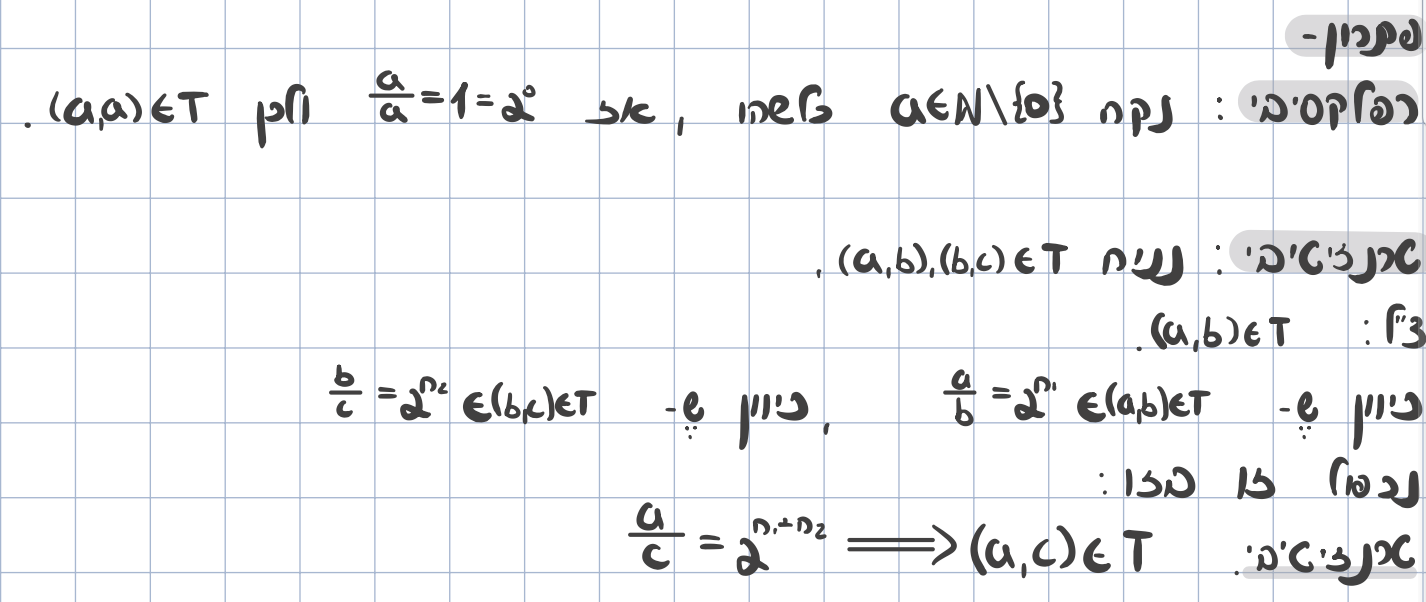 פתרון-
רפלקסיבי: נקח a∈ℕ\{0} כלשהו, אז a/a = 1 = 2⁰ ולכן (a,a)∈T.
טרנזיטיבי: נניח (a,b),(b,c)∈T,
צ"ל: (a,b)∈T.
כיוון ש- a/b = 2^n₁ ∈(a,b)∈T, כיוון ש- b/c = 2^n₂ ∈(b,c)∈T
נכפול זו בזו:
טרנזיטיבי. a/c = 2^(n₁+n₂) ⟹ (a,c)∈T